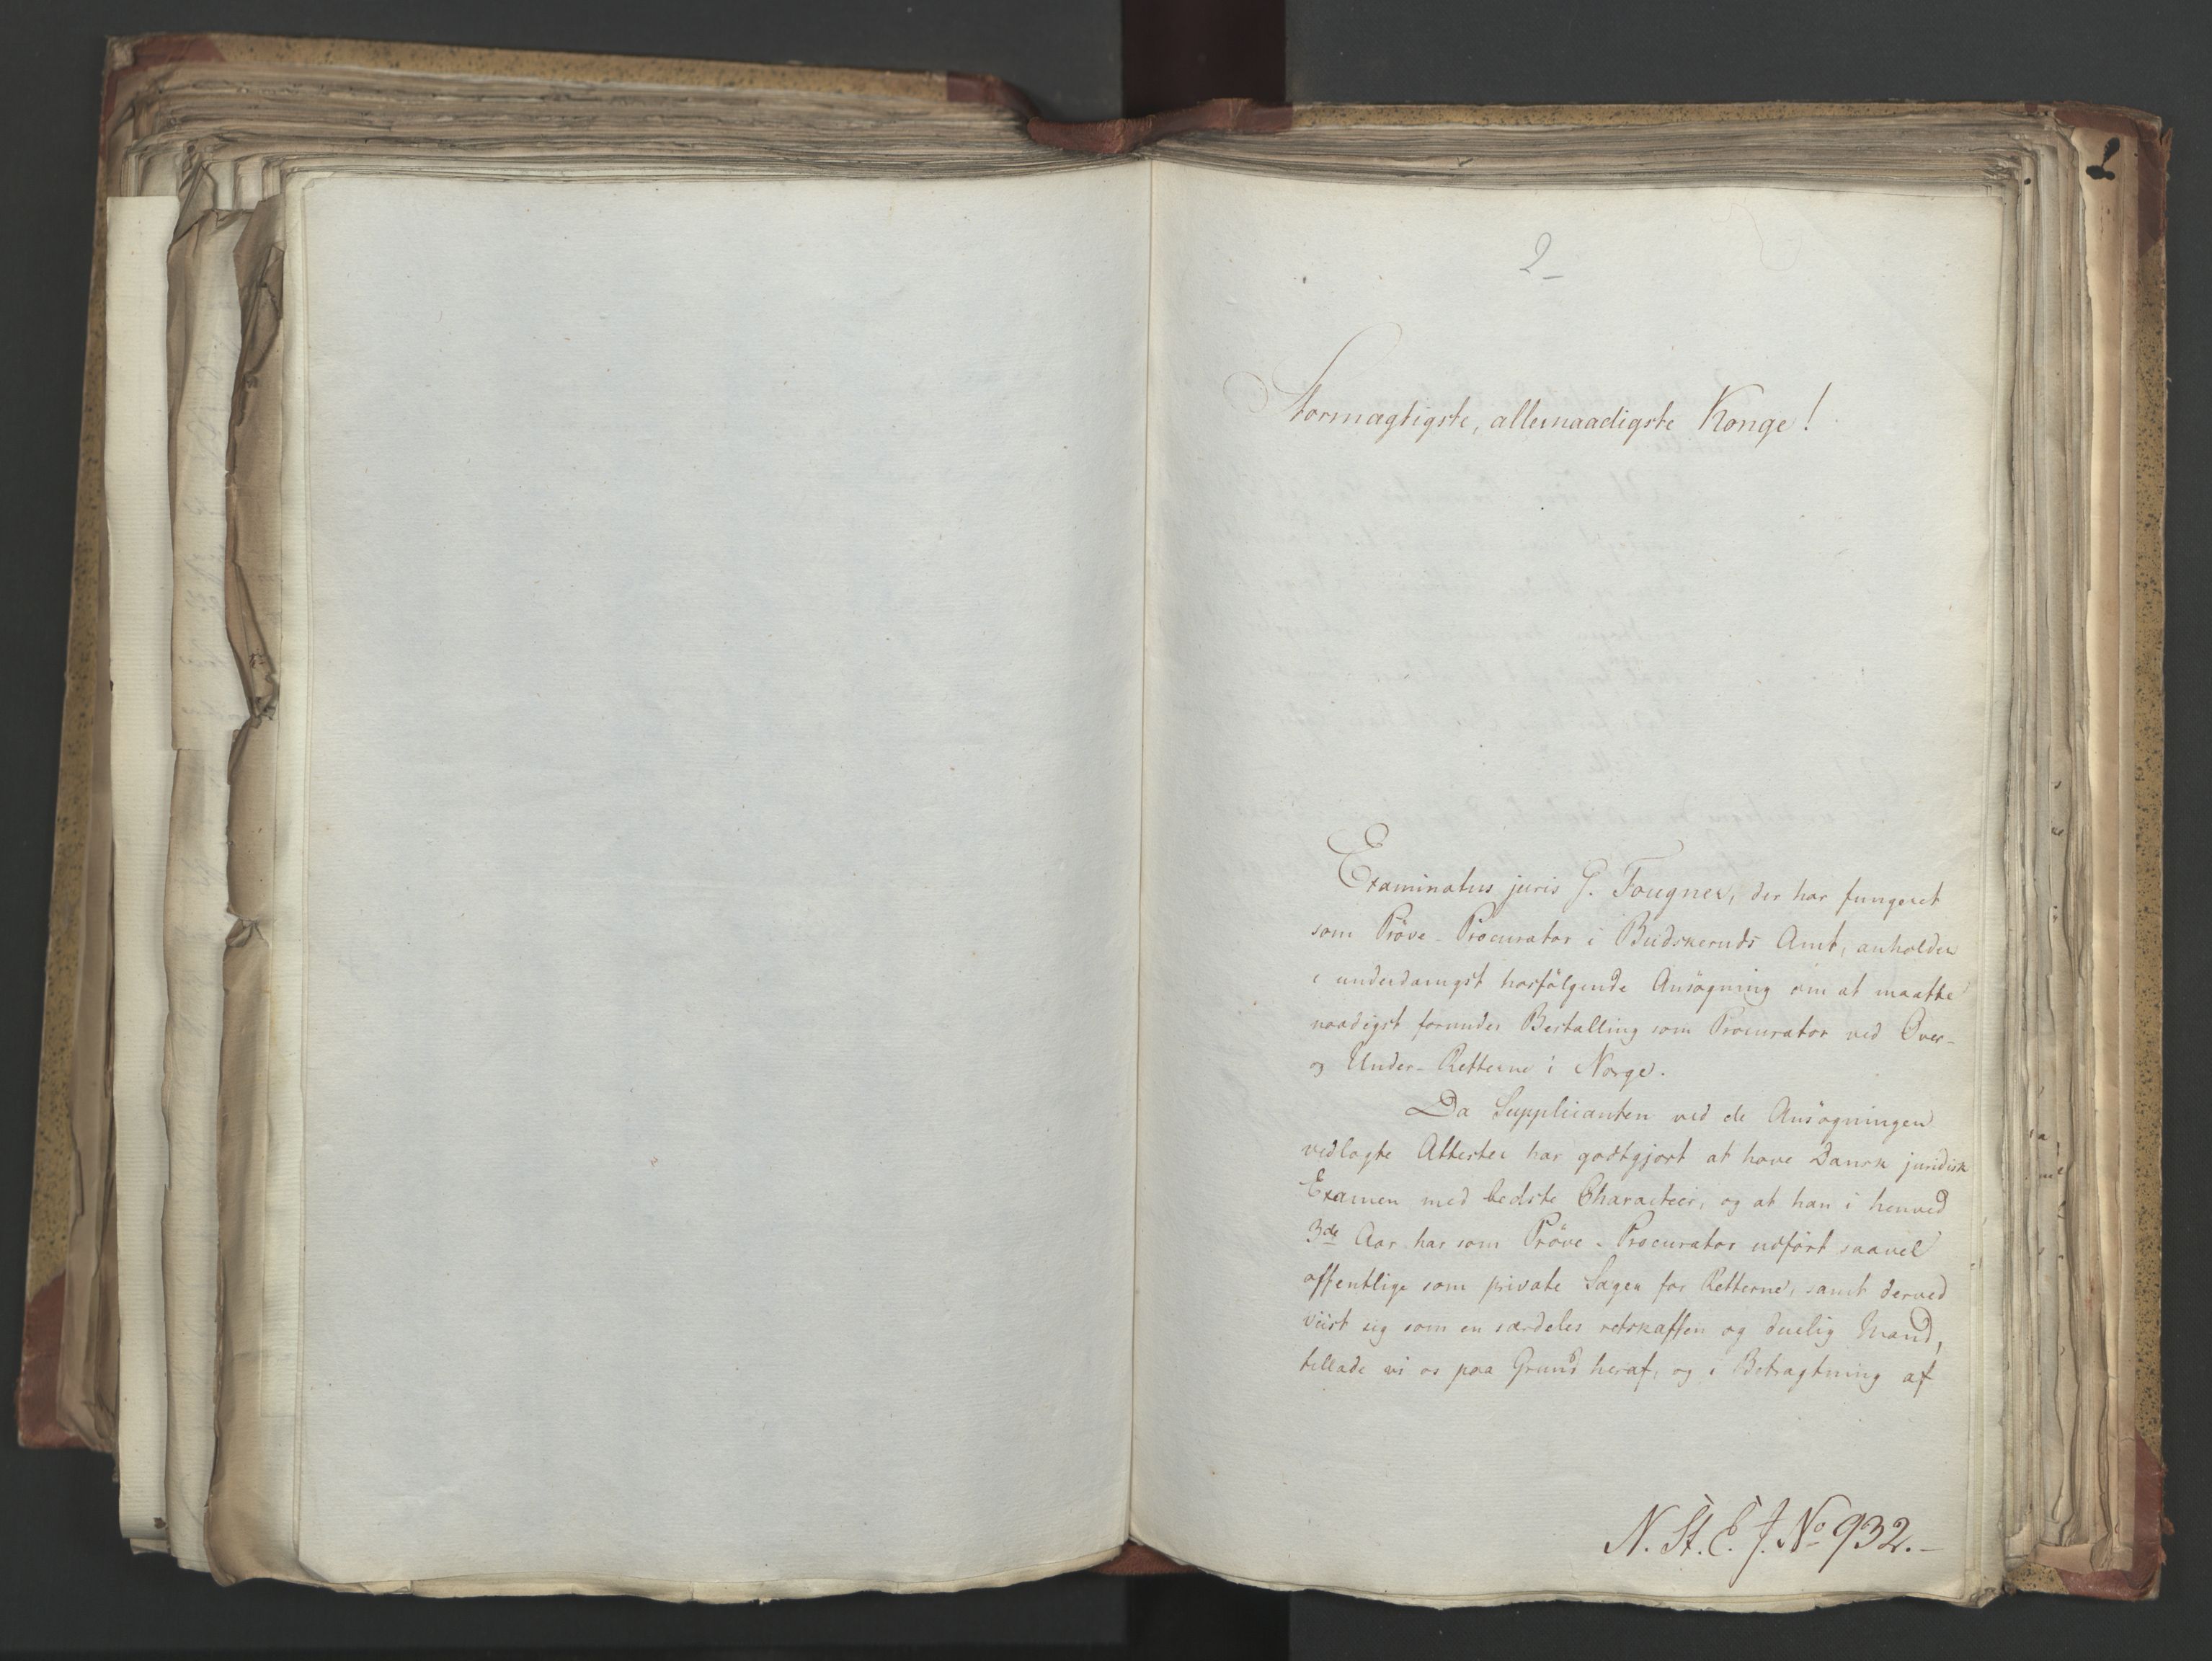 2
Stormægtigste, allernaadigste Konge!
Examinatus juris G. Fougner, der har fungeret
som Pröve-Procurator i Budskeruds Amt, anholder
i underdanigst hosfölgende Ansögning om at maatte
naadigst forundes Bestalling som Procurator ved Over-
og Under-Retterne i Norge.
Da Supplicanten ved de Ansögningen
vedlagte Attester har godtgjort at have Dansk juridisk
Examen med bedste Characteer, og at han i henved
3de Aar har som Pröve-Procurator udfört saavel
offentlige som private Sager for Retterne, samt derved
viist sig som en særdeles retskaffen og duelig Mand,
tillade vi os paa Grund heraf, og i Betragtning af
N. St. C. J. No 932.-